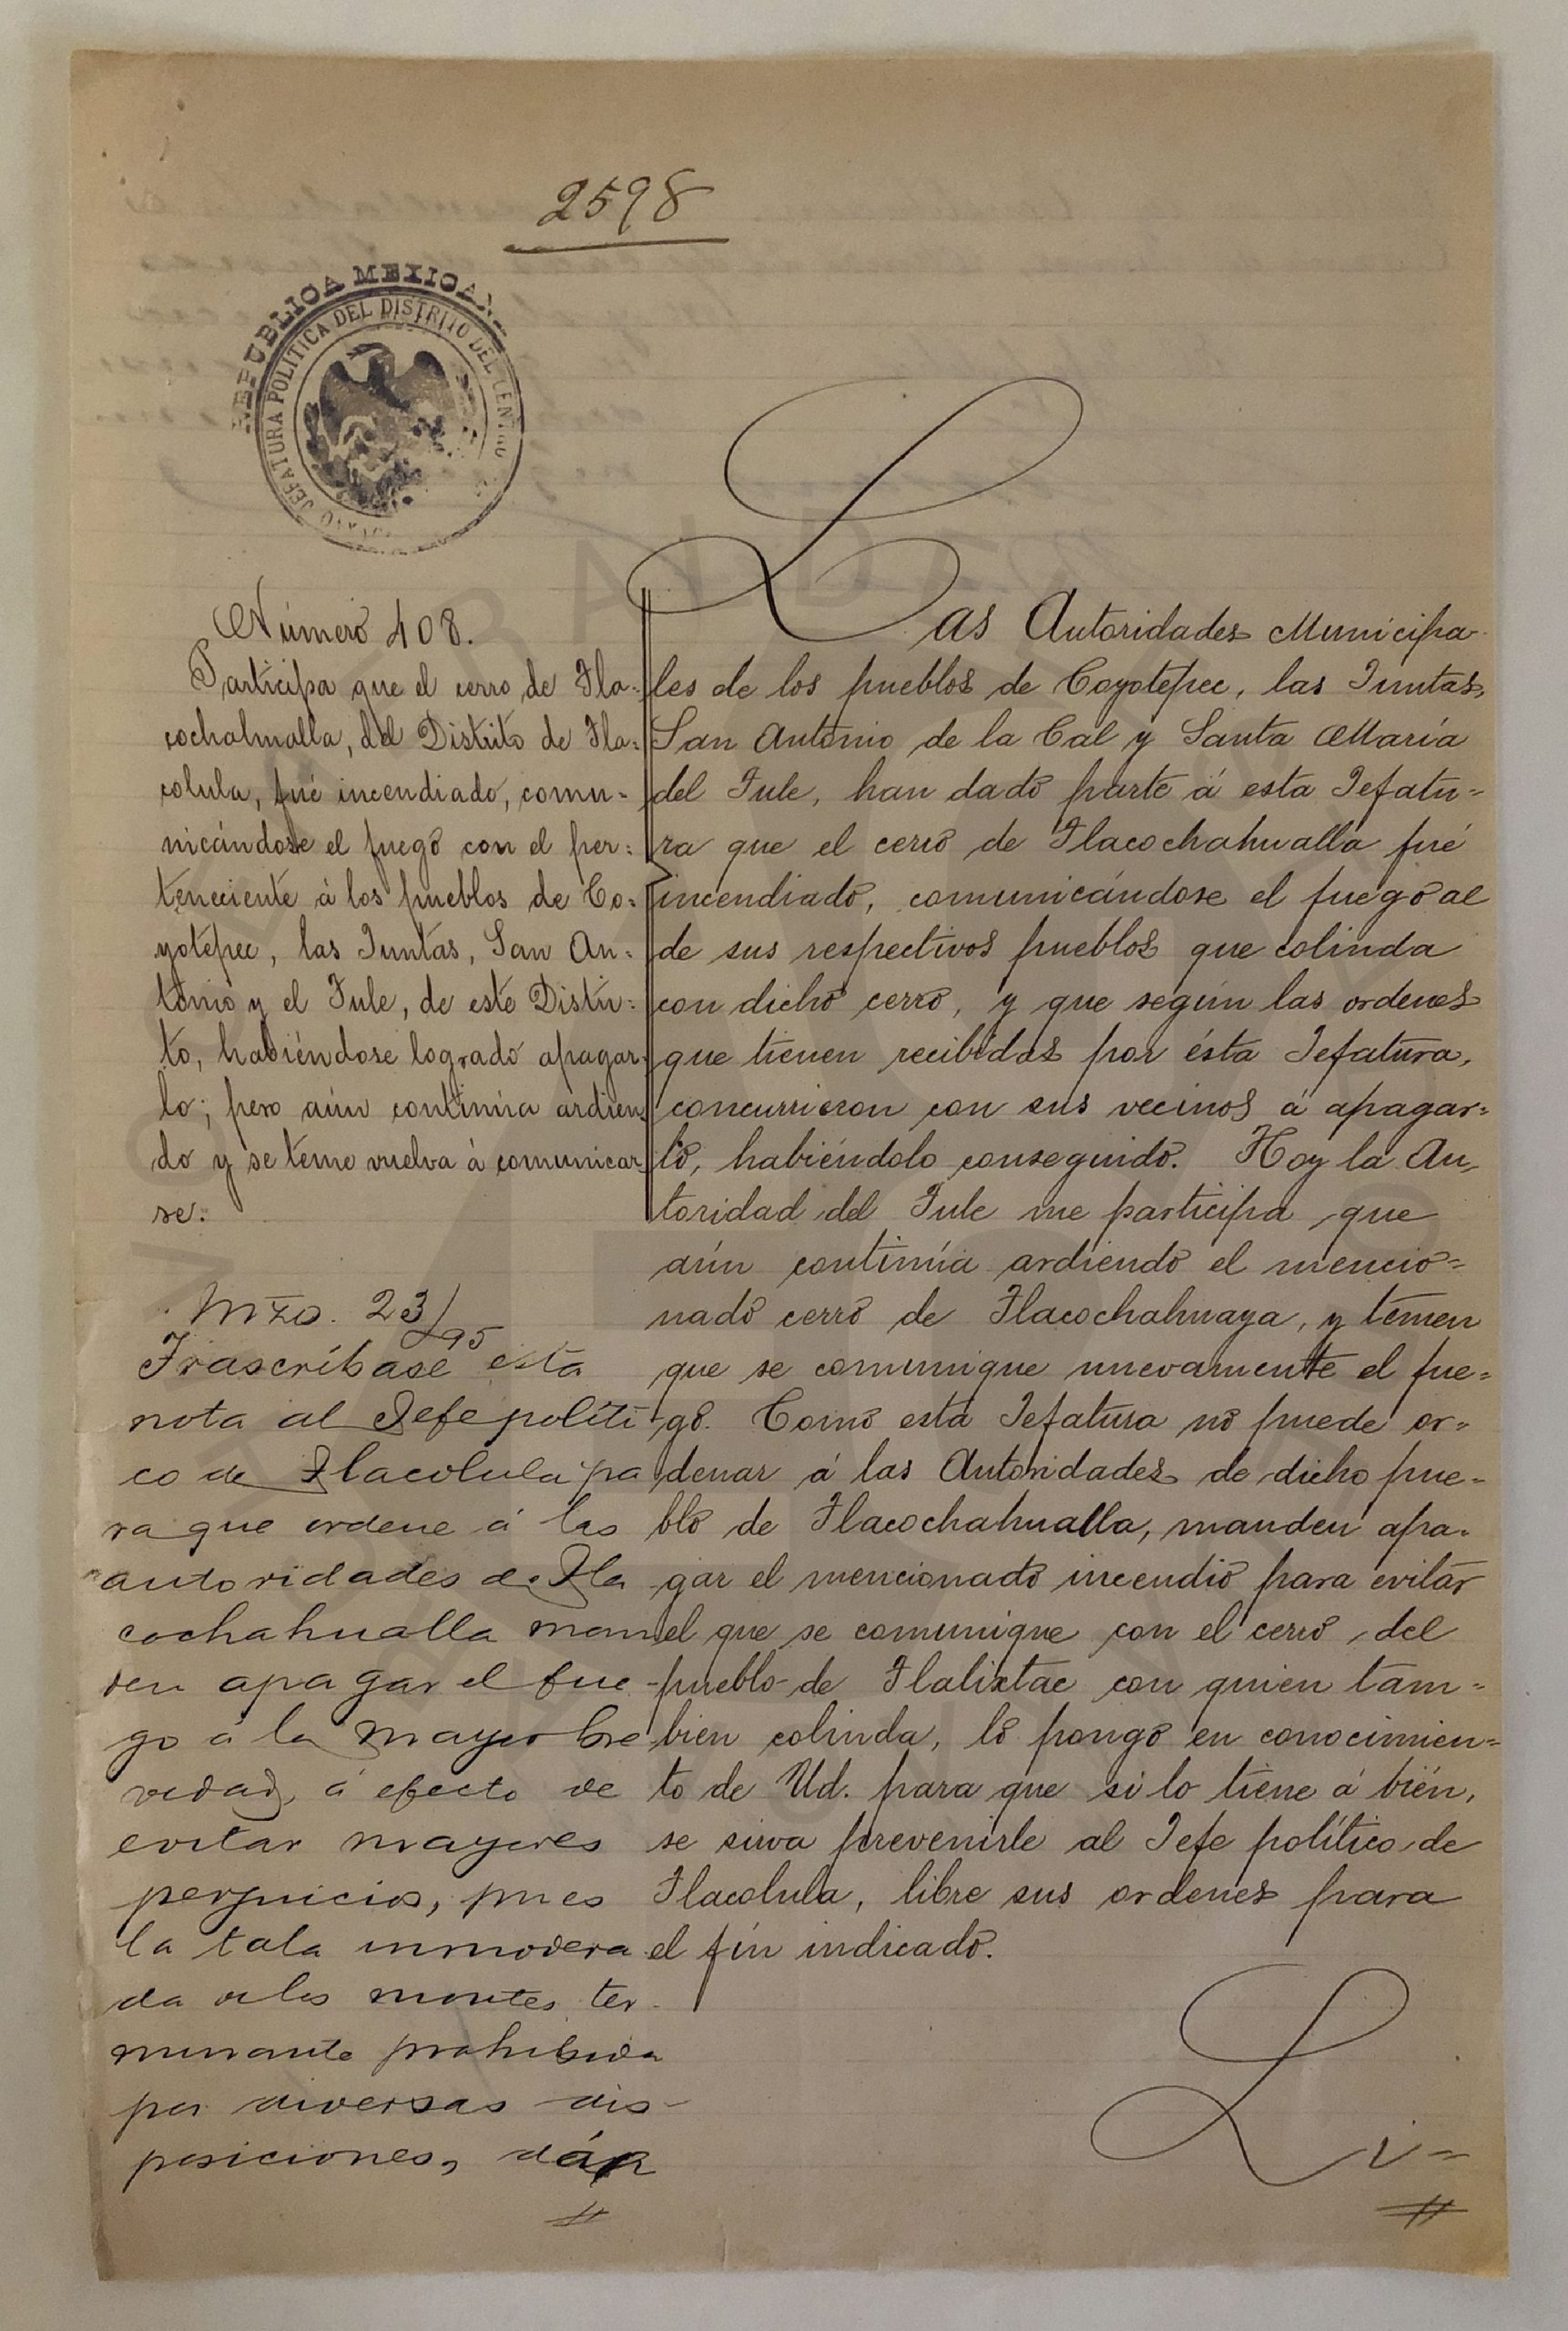 2598
REPUBLICA MEXICANA
JEFATURA POLITICA DEL DISTRITO DEL CENTRO
Número 408.
Participa que el cerro de Tla-
cochahualla, del Distrito de Tla-
colula, fué incendiado, comu-
nicándose el fuego con el per-
teneciente á los pueblos de Co-
yotepec, las Juntas, San An-
tonio y el Tule, de este Distri-
to, habiéndose logrado apagar-
lo; pero aún continúa ardien
do y se teme vuelva á comunicar
se.
Mzo. 23/95
Trascríbase esta
nota al Jefe políti
co de Tlacolula pa
ra que ordene á las
autoridades de Tla
cochahualla man
den apagar el fue-
go á la mayor bre
vedad, á efecto de
evitar mayores
perjuicios, pues
la tala inmodera
da de los montes ter-
minante prohibida
por diversas dis-
posiciones, dáp
Las Autoridades Municipa-
les de los pueblos de Coyotepec, las Juntas,
San Antonio de la Cal y Santa María
del Tule, han dado parte á esta Jefatu-
ra que el cerro de Tlacochahualla fué
incendiado, comunicándose el fuego al
de sus respectivos pueblos que colinda
con dicho cerro, y que según las ordenes
que tienen recibidas por ésta Jefatura,
concurrieron con sus vecinos á apagar-
lo, habiéndolo conseguido. Hoy la Au-
toridad del Tule me participa que
aún continúa ardiendo el mencio-
nado cerro de Tlacochahuaya, y temen
que se comunique nuevamente el fue-
go. Como esta Jefatura no puede or-
denar á las Autoridades de dicho pue-
blo de Tlacochahualla, manden apa-
gar el mencionado incendio para evitar
el que se comunique con el cerro del
pueblo de Tlalixtac con quien tam-
bien colinda, lo pongo en conocimien-
to de Ud. para que si lo tiene á bién,
se sirva prevenirle al Jefe político de
Tlacolula, libre sus ordenes para
el fín indicado.
Li-